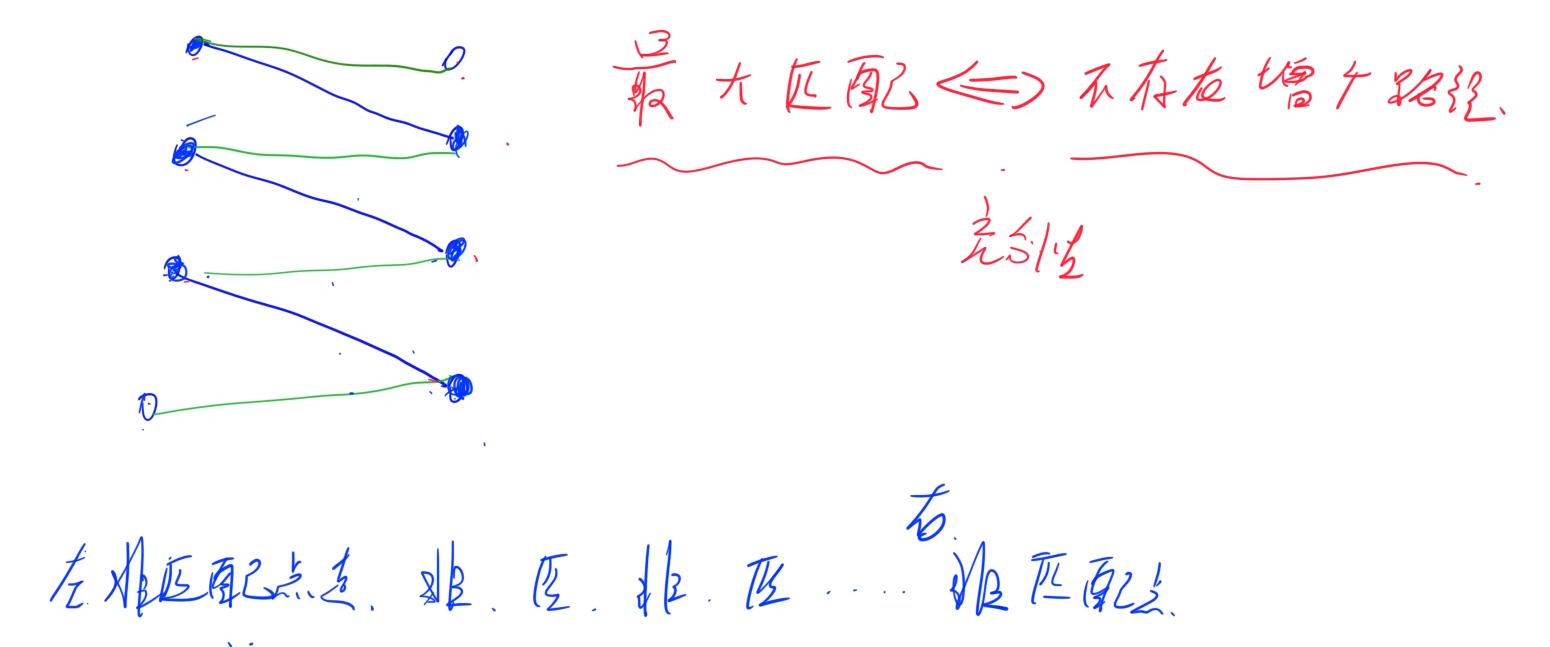 最大匹配 <=> 不存在增广路径.
充分性
右
左非匹配点走. 非. 匹. 非. 匹 ..... 非匹配点.